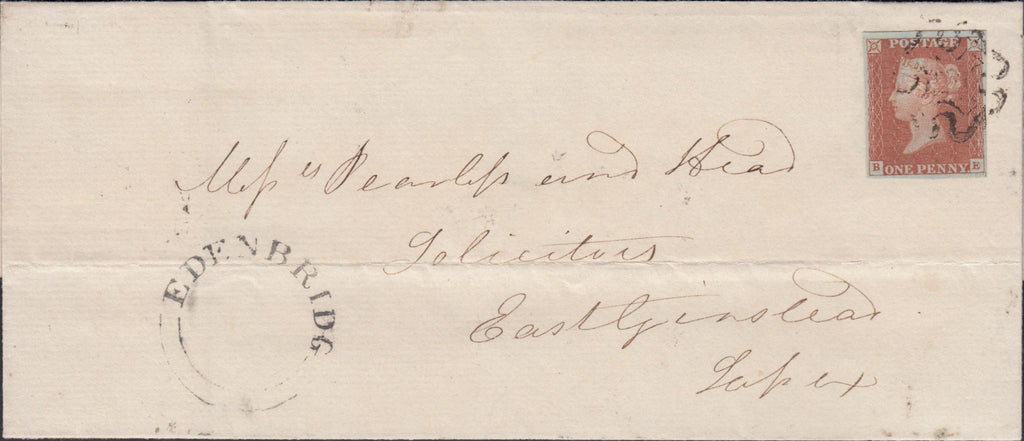 POSTAGE
B ONE PENNY E
Messrs Pearless and Head
Solicitors
East Grinstead
Sussex
EDENBRIDG